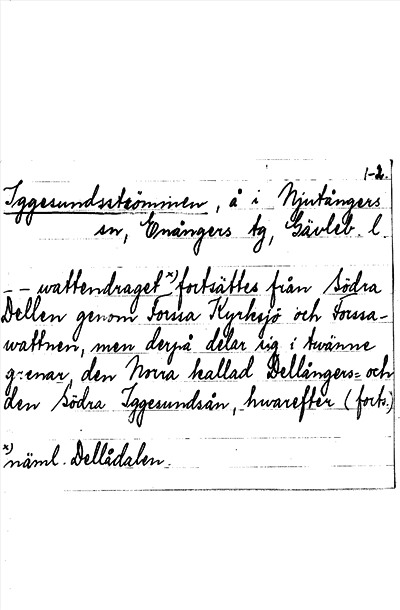 1-2.
Iggesundsströmmen, å i Njutångers
sn, Enångers tg, Gävleb. l.
- - wattendraget x) fortsättes från Södra
Dellen genom Forssa Kyrksjö och Forssa-
wattnen, men derpå delar sig i twänne
grenar, den Norra kallad Dellångers= och
den Södra Iggesundsån, hwarefter (forts.)
x) näml. Dellådalen.